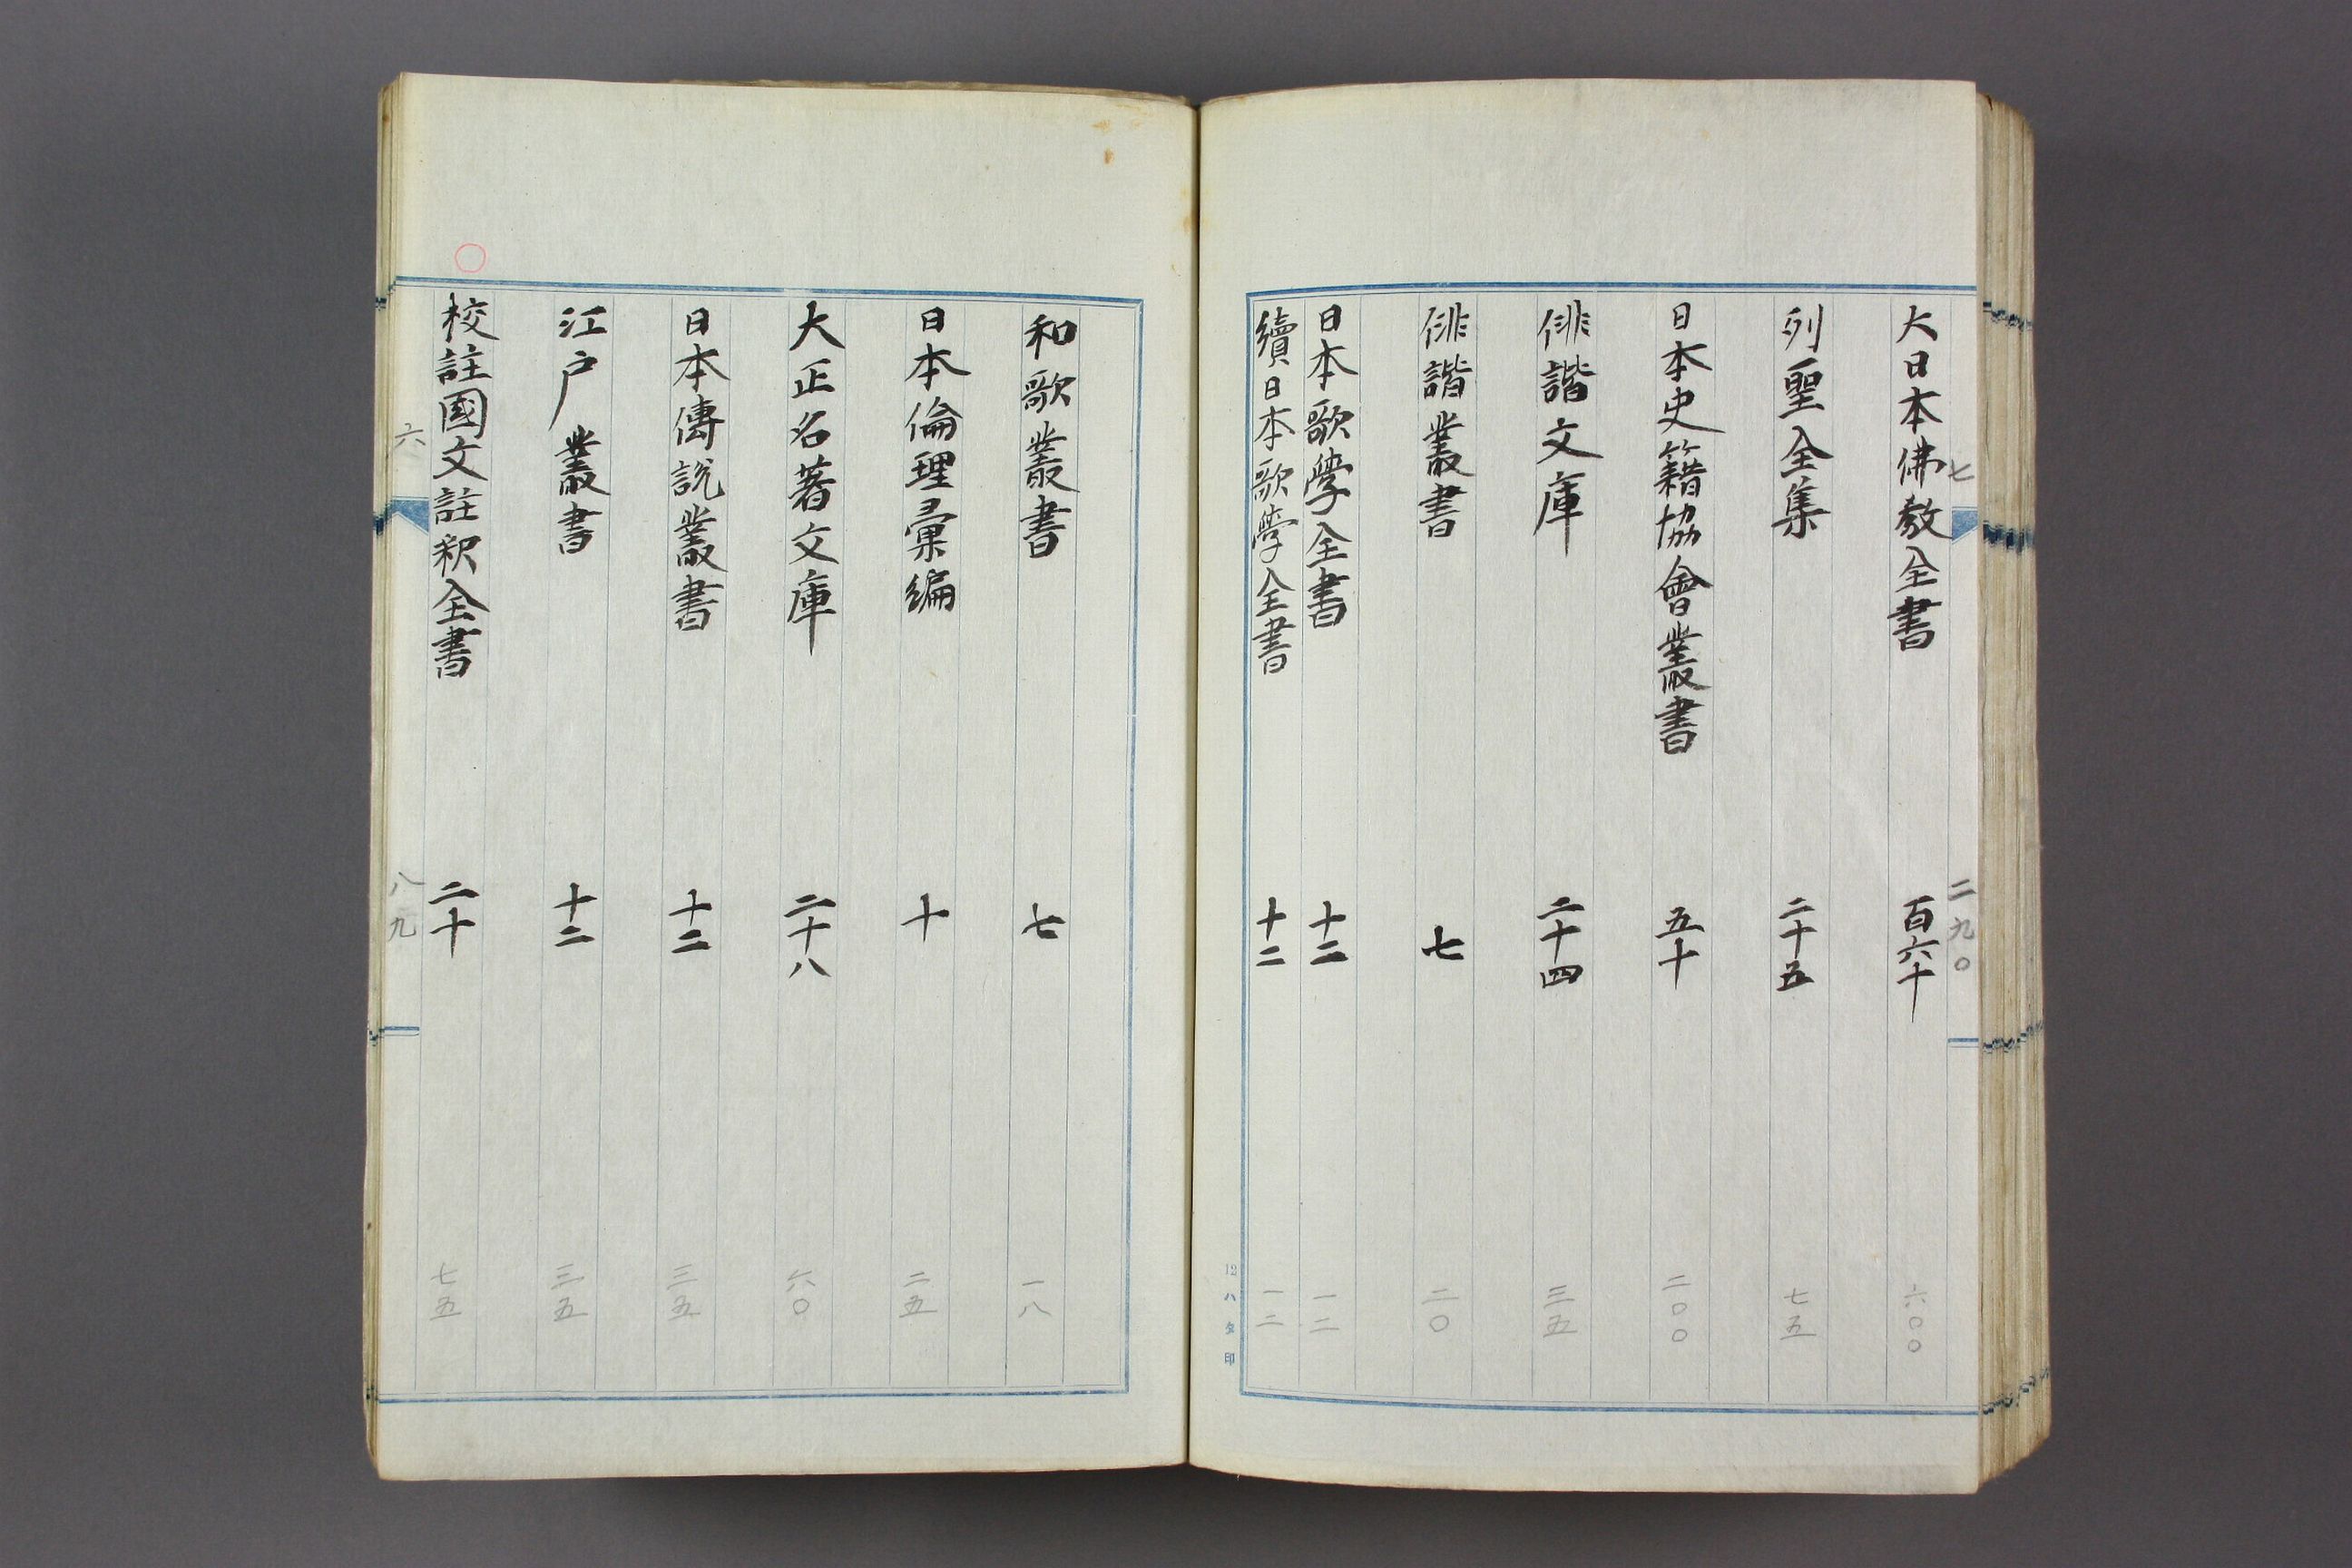 大日本佛教全書 百六十 六〇〇
列聖全集 二十五 七五
日本史籍協會叢書 五十 二〇〇
俳諧文庫 二十四 三五
俳諧叢書 七 二〇
日本歌學全書 十二 一二
續日本歌學全書 十二 一二
12ハタ印
七 二九〇
和歌叢書 七 一八
日本倫理彙編 十 二五
大正名著文庫 二十八 六〇
日本傳説叢書 十二 三五
江戸叢書 十二 三五
校註國文註釈全書 二十 七五
六 八九